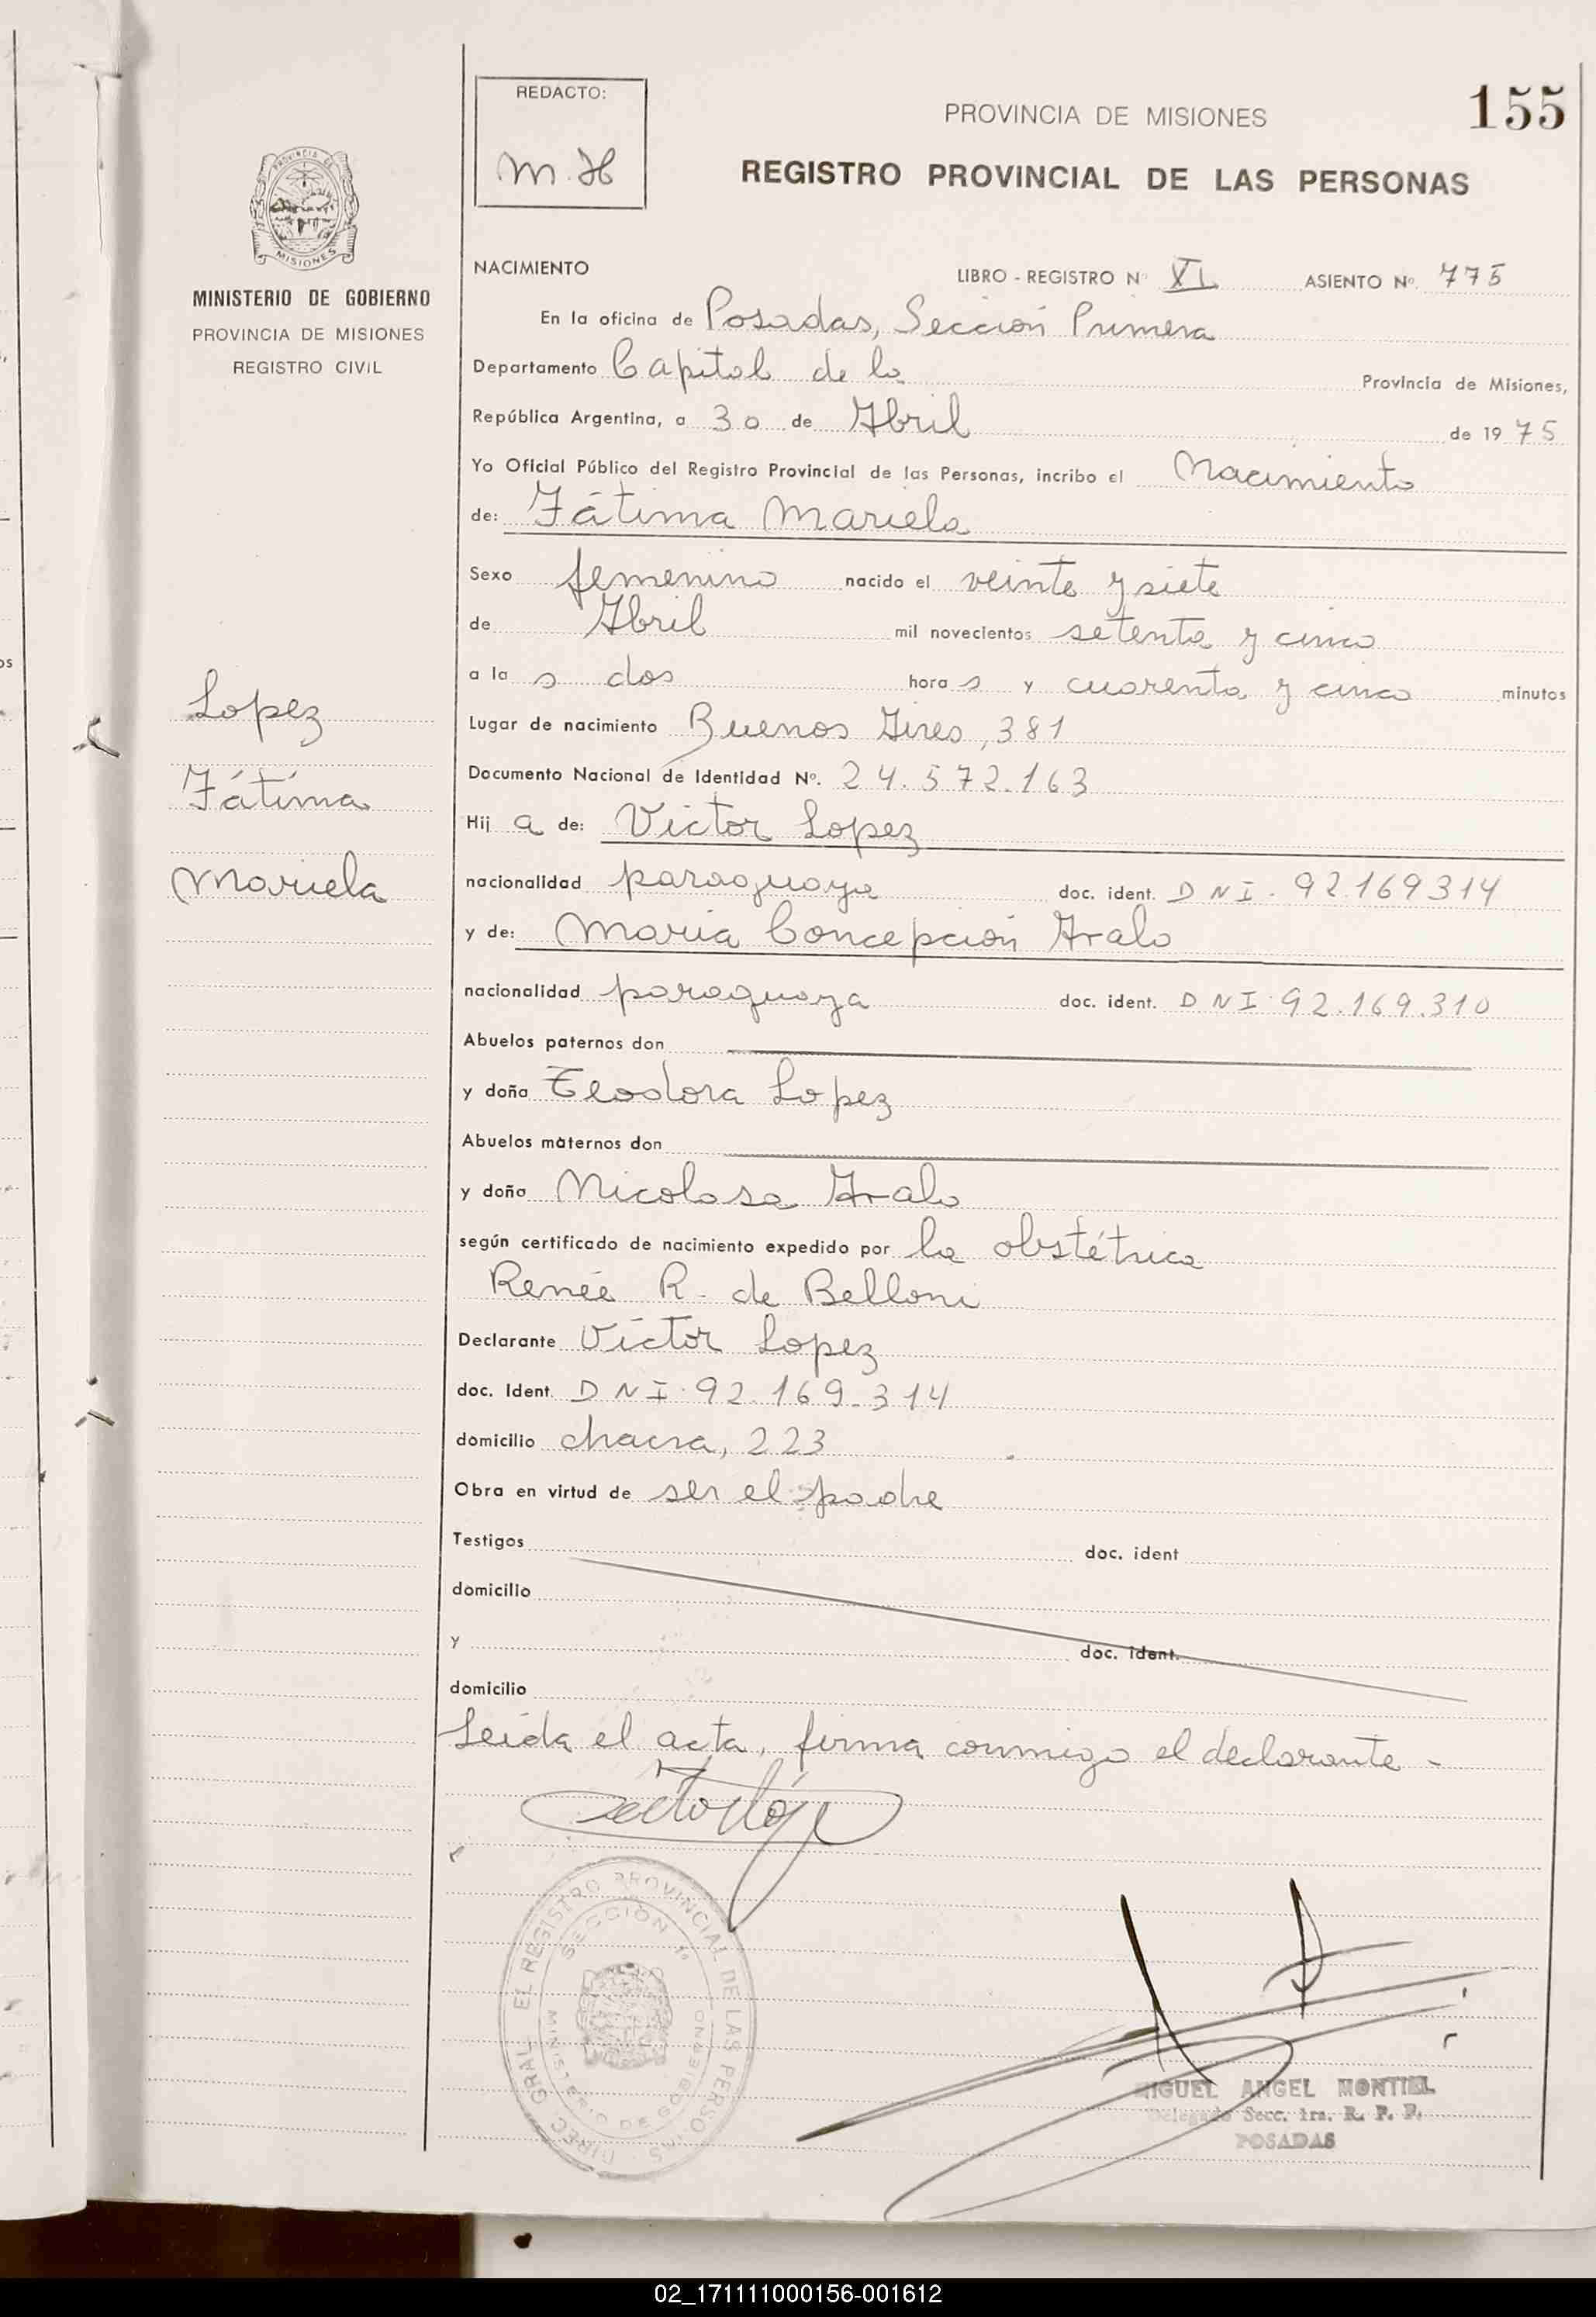 REDACTO:
M.H
PROVINCIA DE MISIONES
155
REGISTRO PROVINCIAL DE LAS PERSONAS
PROVINCIA DE
MISIONES
MINISTERIO DE GOBIERNO
PROVINCIA DE MISIONES
REGISTRO CIVIL
NACIMIENTO LIBRO - REGISTRO Nº XL ASIENTO Nº. 775
En la oficina de Posadas, Sección Primera
Departamento Capital de la Provincia de Misiones,
República Argentina, a 30 de Abril de 1975
Yo Oficial Público del Registro Provincial de las Personas, incribo el Nacimiento
de: Fátima Mariela
Sexo femenino nacido el veinte y siete
de Abril mil novecientos setenta y cinco
a la s dos hora s y cuarenta y cinco minutos
Lopez
Fátima
Mariela
Lugar de nacimiento Buenos Aires, 381
Documento Nacional de Identidad Nº. 24.572.163
Hij a de: Victor Lopez
nacionalidad paraguaya doc. ident. DNI. 92.169314
y de: Maria Concepción Aralo
nacionalidad paraguaya doc. ident. DNI 92.169.310
Abuelos paternos don
y doña Teodora Lopez
Abuelos maternos don
y doña Nicolasa Aralo
según certificado de nacimiento expedido por la obstétrica
Renée R. de Belloni
Declarante Victor Lopez
doc. Ident. DNI. 92.169.314
domicilio chacra, 223
Obra en virtud de ser el padre
Testigos doc. ident
domicilio
y doc. ident.
domicilio
Leida el acta, firma conmigo el declarante -
DIREC. GRAL. EL REGISTRO PROVINCIAL DE LAS PERSONAS
SECCION 1ª
MINISTERIO DE GOBIERNO
MIGUEL ANGEL MONTIEL
Delegado Secc. 1ra. R. P. P.
POSADAS
02_171111000156-001612